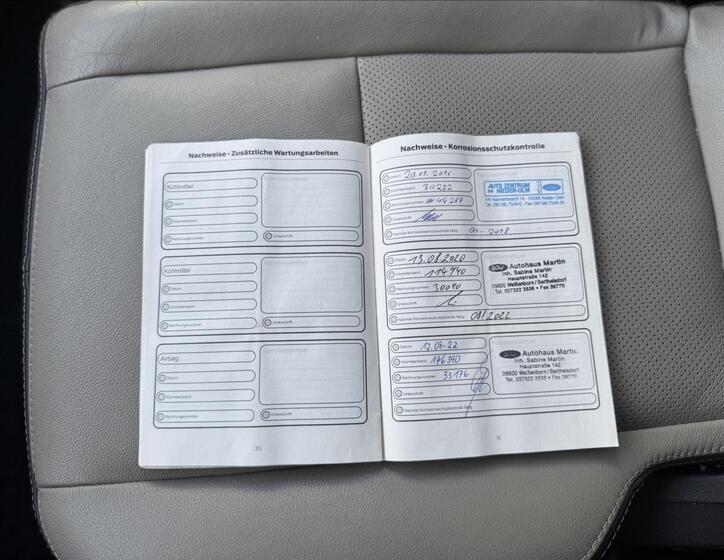 Nachweise - Zusätzliche Wartungsarbeiten
Kühlmittel
Datum
Kilometerstand
Rechnungsnummer
Unterschrift
Kühlmittel
Datum
Kilometerstand
Rechnungsnummer
Unterschrift
Airbag
Datum
Kilometerstand
Rechnungsnummer
Unterschrift
30
Nachweise - Korrosionsschutzkontrolle
Datum
Kilometerstand 30232
Rechnungsnummer
Unterschrift
Nächste Korrosionsschutzkontrolle fällig
AUTO ZENTRUM
NIEDER-OLM
Datum 13.08.2020
Kilometerstand 114940
Rechnungsnummer 30090
Unterschrift
Nächste Korrosionsschutzkontrolle fällig 08/2022
Ford Autohaus Martin
Inh. Sabine Martin
Hauptstraße 142
09600 Weißenborn/Berthelsdorf
Tel. 037322 3536 • Fax 39770
Datum 17.08.22
Kilometerstand 146390
Rechnungsnummer 33176
Unterschrift
Nächste Korrosionsschutzkontrolle fällig
Autohaus Martin
Inh. Sabine Martin
Hauptstraße 142
09600 Weißenborn/Berthelsdorf
Tel. 037322 3536 • Fax 39770
31